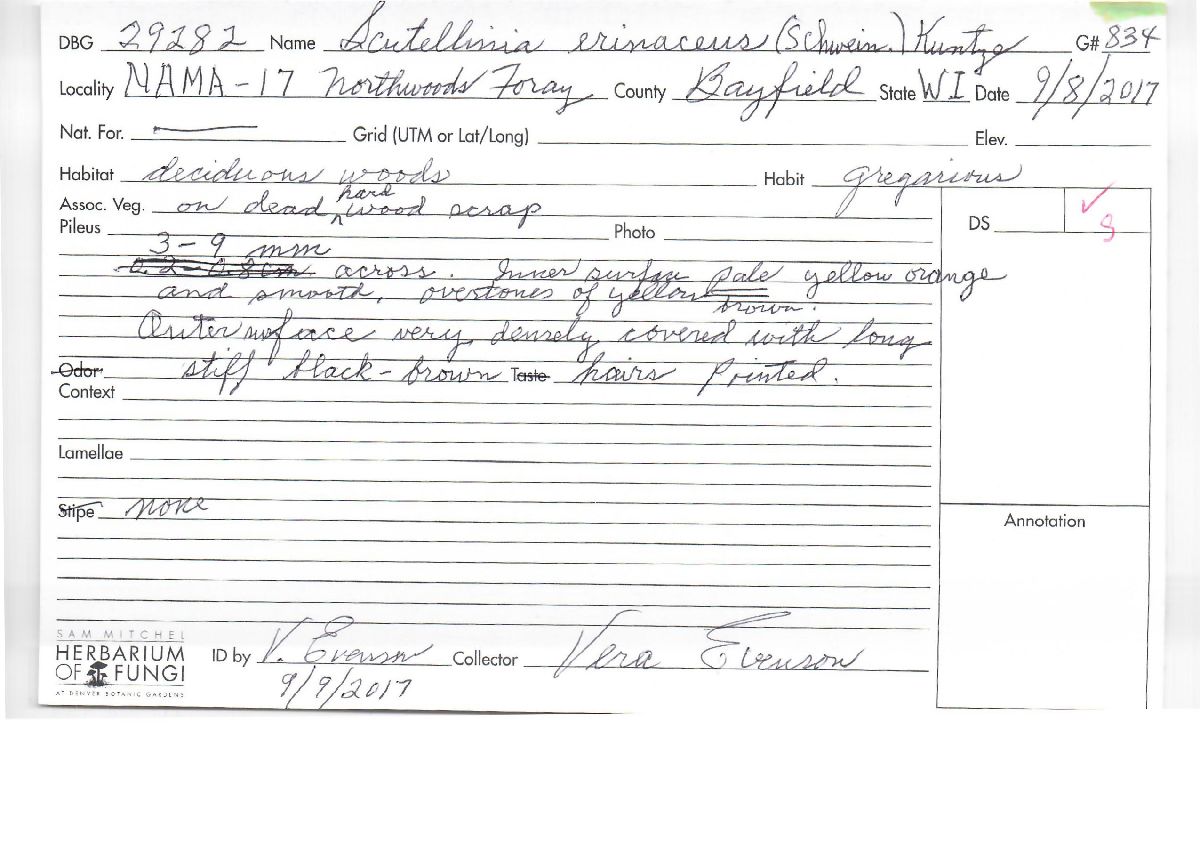 DBG 29282 Name Scutellinia erinaceus (Schwein.) Kuntze G# 834
Locality NAMA-17 Northwoods Foray County Bayfield State WI Date 9/8/2017
Nat. For. — Grid (UTM or Lat/Long) Elev.
Habitat deciduous woods Habit gregarious
hard
Assoc. Veg. on dead ^ wood scrap DS ✓
Pileus Photo 8
3-9 mm
0.2-0.8cm across. Inner surface pale yellow orange
and smooth, overtones of yellow brown.
Outer surface very densely covered with long
Odor stiff black-brown Taste hairs Pointed.
Context
Lamellae
Stipe none
Annotation
SAM MITCHEL
HERBARIUM
OF FUNGI
AT DENVER BOTANIC GARDENS
ID by V. Evenson Collector Vera Evenson
9/9/2017